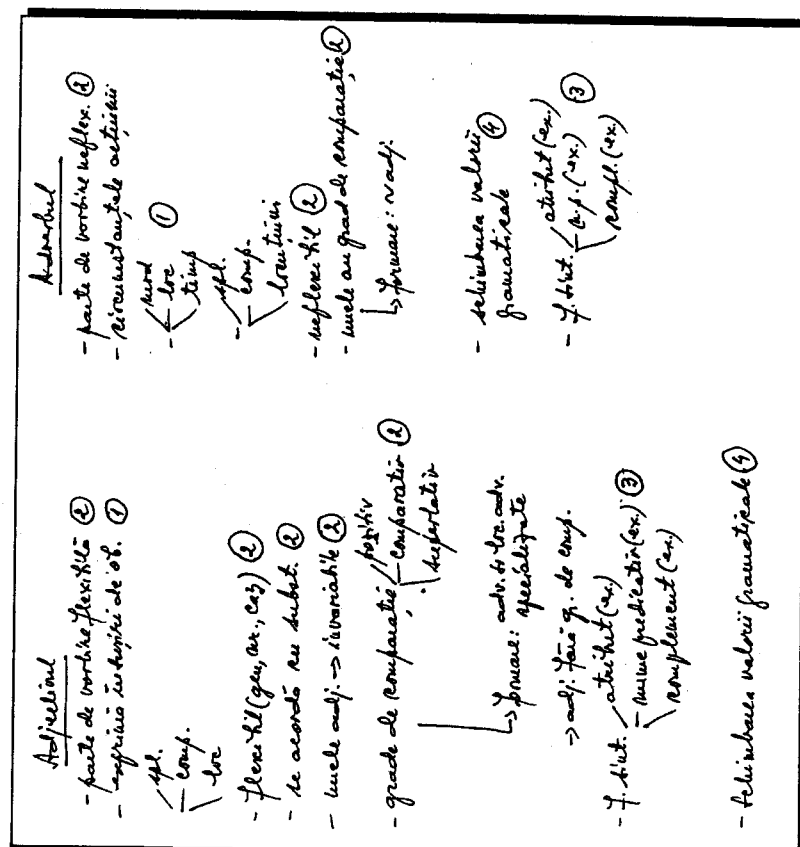 Adjectivul
- parte de vorbire flexibilă ②
- exprimă însușiri de ob. ①
- spl.
- comp.
loc
- flexibil (gen, nr., caz) ②
- se acordă cu subst. ②
- unele adj. → invariabile ②
- grade de comparație
pozitiv
comparativ ②
superlativ
↳ formare: adv. și loc. adv.
specializate
→ adj. fără g. de comp.
- f. sint.
atribut (ex.)
nume predicativ (ex.) ③
complement (ex.)
- schimbarea valorii gramaticale ④
Adverbul
- parte de vorbire neflex. ②
- circumstanțele acțiunii
- mod
loc ①
timp
- spl.
comp.
locuțiuni
- neflexibil ②
- unele au grad de comparație ②
↳ formare: ~ adj.
- schimbarea valorii
gramaticale ④
- f. sint.
atribut (ex.)
n.p. (ex.) ③
compl. (ex.)